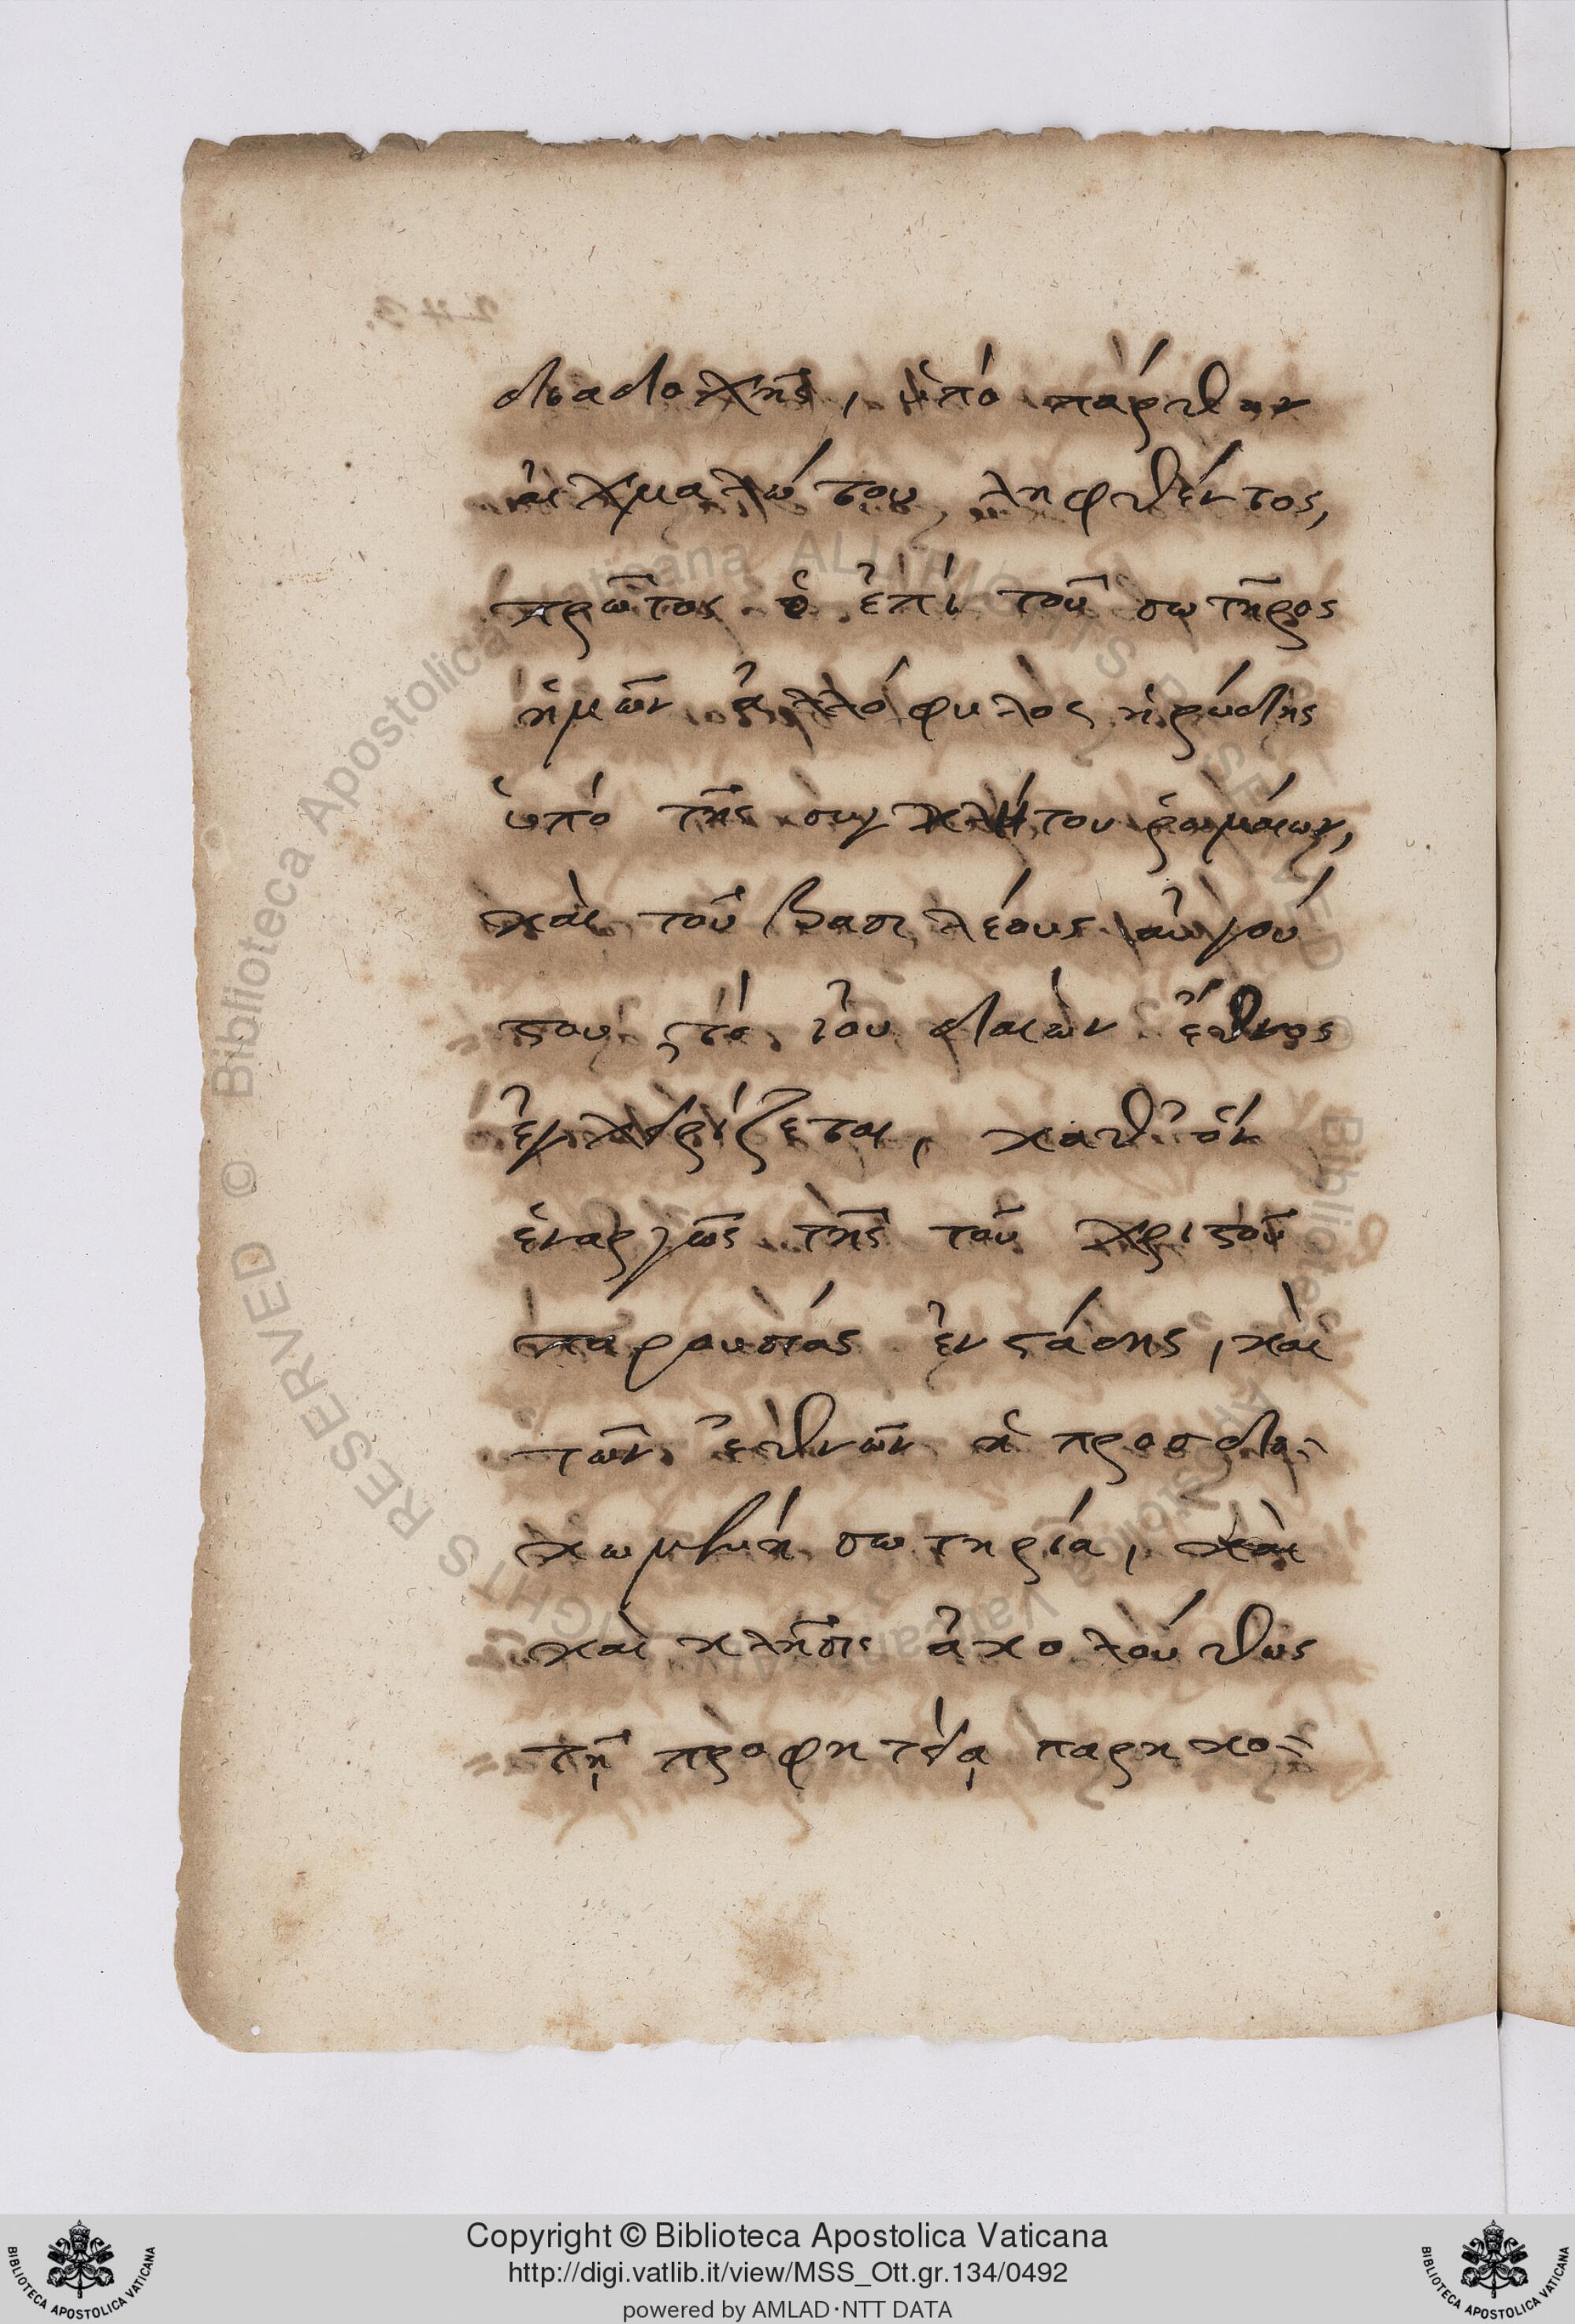 διαδοχῆς, ὑπὸ πάρθων
αἰχμαλώτου ληφθέντος,
πρῶτος ὁ ἐπὶ τοῦ σωτῆρος
ἡμῶν ἀλλόφυλος ἡρώδης
ὑπὸ τῆς συγκλήτου ῥωμαίων,
καὶ τοῦ βασιλέους αὐγού
στου, τὸ ἰουδαιὼν ἔθνος
ἐγχειρίζεται, καθ' ὃν
ἐναργῶς τῆς τοῦ χριστοῦ
παρουσίας ἐνστάσης, καὶ
τῶν ἐθνῶν ἡ προσδο-
κωμένη σωτηρία, καὶ
καὶ κλῆσις ἀκολούθως
τῇ προφητείᾳ παρηκο-
Copyright © Biblioteca Apostolica Vaticana
http://digi.vatlib.it/view/MSS_Ott.gr.134/0492
powered by AMLAD·NTT DATA
BIBLIOTECA APOSTOLICA VATICANA
BIBLIOTECA APOSTOLICA VATICANA